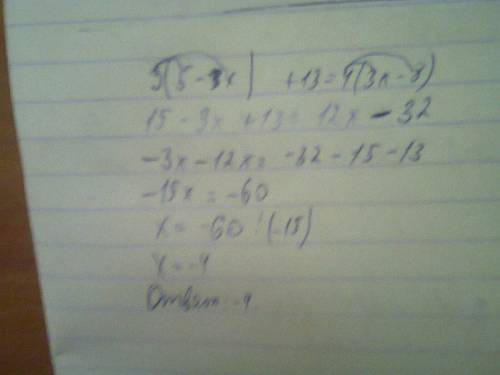 3(5-3x) +13=4(3x-8)
15-3x+13=12x-32
-3x-12x=-32-15-13
-15x=-60
x=-60:(-15)
x=-4
Ответ:-4